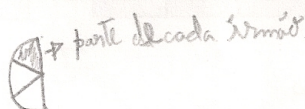 → parte de cada irmão